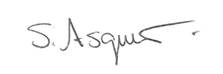 S. Asquit